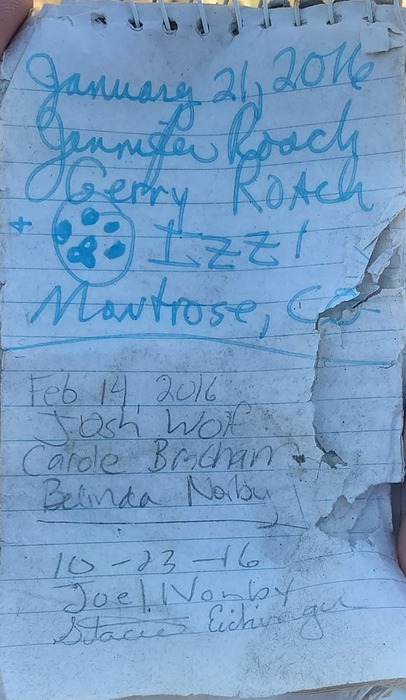 January 21, 2016
Jennifer Roach
Gerry Roach
+ Izzi
Montrose, CO
Feb 14, 2016
Josh Wolf
Carole
Belinda
10-23-16
Joel
Stacie